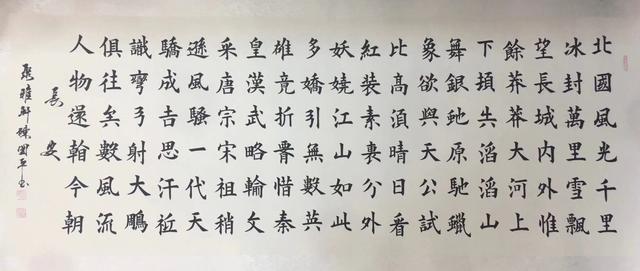 北國風光千里
冰封萬里雪飄
望長城內外惟
餘莽莽大河上
下頓失滔滔山
舞銀虵原馳蠟
象欲與天公試
比高湏晴日看
紅裝素裹分外
妖嬈江山如此
多嬌引無數英
雄竟折腰惜秦
皇漢武略輸文
采唐宗宋祖稍
遜風騷一代天
驕成吉思汗祗
識彎弓射大鵰
俱往矣數風流
人物還看今朝